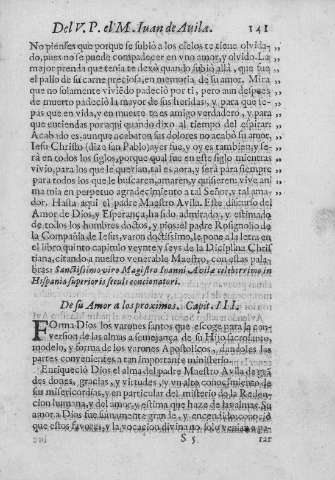 Del V. P. el M. Iuan de Auila. 141
No pienses que porque se subiò a los cielos te tiene oluida-
do, pues no se puede compadecer en vno amor, y oluido. La
mejor prenda que tenia te dexò quando subiò allà, que fue
el palio de su carne preciosa, en memoria de su amor. Mira
que no solamente viuiēdo padeciò por ti, pero aun despues
de muerto padeciò la mayor de sus heridas, y para que se-
pas que en vida, y en muerte te es amigo verdadero, y para
que entiendas por aqui quando dixo al tiempo del espirar:
Acabado es, aunque acabaron sus dolores no acabò su amor,
Iesu Christo (dize san Pablo) ayer fue, y oy es tambien, y se-
rà en todos los siglos, porque qual fue en este siglo mientras
viuio, para los que le querian, tal es aora, y serà para siempre
para todos los que le buscaren, amaren, y quisieren: viue ani
ma mia en perpetuo agradecimiento a tal Señor, y tal ama-
dor. Hasta aqui el padre Maestro Auila. Este discurso del
Amor de Dios, y Esperança, ha sido admirado, y estimado
de todos los hombres doctos, y pios: el padre Rosignolio de
la Compañia de Iesus, varon doctissimo, le pone a la letra en
el libro quinto capitulo veynte y seys de la Diciplina Chris
tiana, citando a nuestro venerable Maestro, con estas pala-
bras: Sanctissimo viro Magistro Ioanni Auila celeberrimo in
Hispania superioris seculi concionatori.
De su Amor a los proximos. Capit. III.
FOrma Dios los varones santos que escoge para la con-
version de las almas a semejança de su Hijo sacrosanto
modelo, y forma de los varones Apostolicos, dandoles las
partes conuenientes a tan importante ministerio.
Enriqueciò Dios el alma del padre Maestro Auila de grā
des dones, gracias, y virtudes, y vn alto conocimiento de
sus misericordias, y en particular del misterio de la Reden-
cion humana, y del amor, y estima que haze de las almas. Su
amor a Dios fue sumamente grande, y encendido: conociò
que estos fauores, y la vocacion diuina no solo venian a
S 5